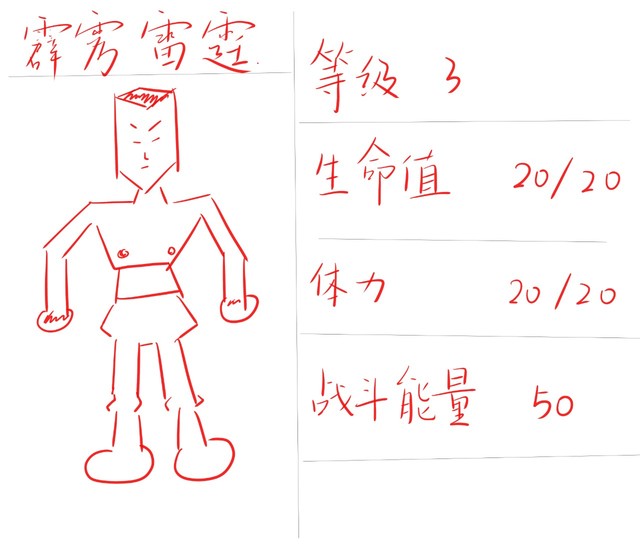 霹雳雷霆
等级 3
生命值 20/20
体力 20/20
战斗能量 50